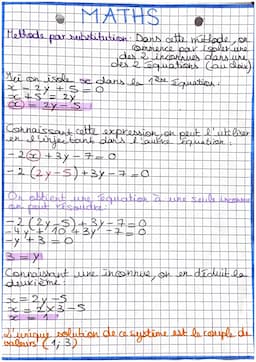 MATHS
Méthode par substitution : Dans cette méthode, on
commence par isoler une
des 2 inconnues dans une
des 2 équations (au choix)
Ici on isole x dans la 1ère équation.
x - 2y + 5 = 0
x + 5 = 2y
x = 2y - 5
Connaissant cette expression, on peut l'utiliser
en l'injectant dans l'autre équation :
-2(x) + 3y - 7 = 0
-2(2y - 5) + 3y - 7 = 0
On obtient une équation à une seule inconnue
on peut résoudre :
-2(2y - 5) + 3y - 7 = 0
-4y + 10 + 3y - 7 = 0
-y + 3 = 0
3 = y
Connaissant une inconnue, on en déduit la
deuxième :
x = 2y - 5
x = 2×3 - 5
x = 1
L'unique solution de ce système est le couple de
valeurs (1; 3)